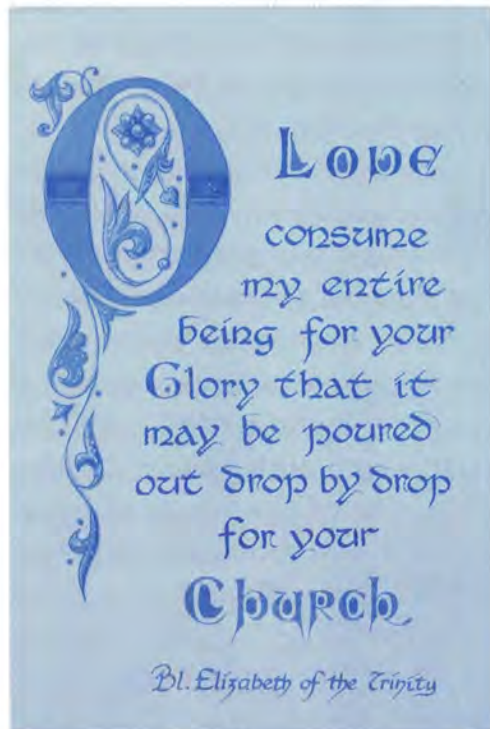 O Love
consume
my entire
being for your
Glory that it
may be poured
out drop by drop
for your
Church
Bl. Elizabeth of the Trinity